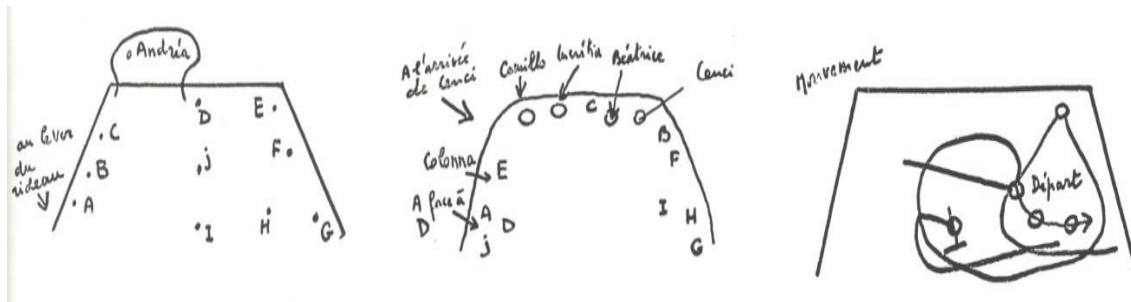 Andréa
au lever
du
rideau
C
B
A
D
j
I
E
F
H
G
A l'arrivée
de Cenci
Camillo
Lucrétia
Béatrice
Cenci
C
B
F
Colonna
E
A face à
D
A
D
j
I
H
G
Mouvement
Départ